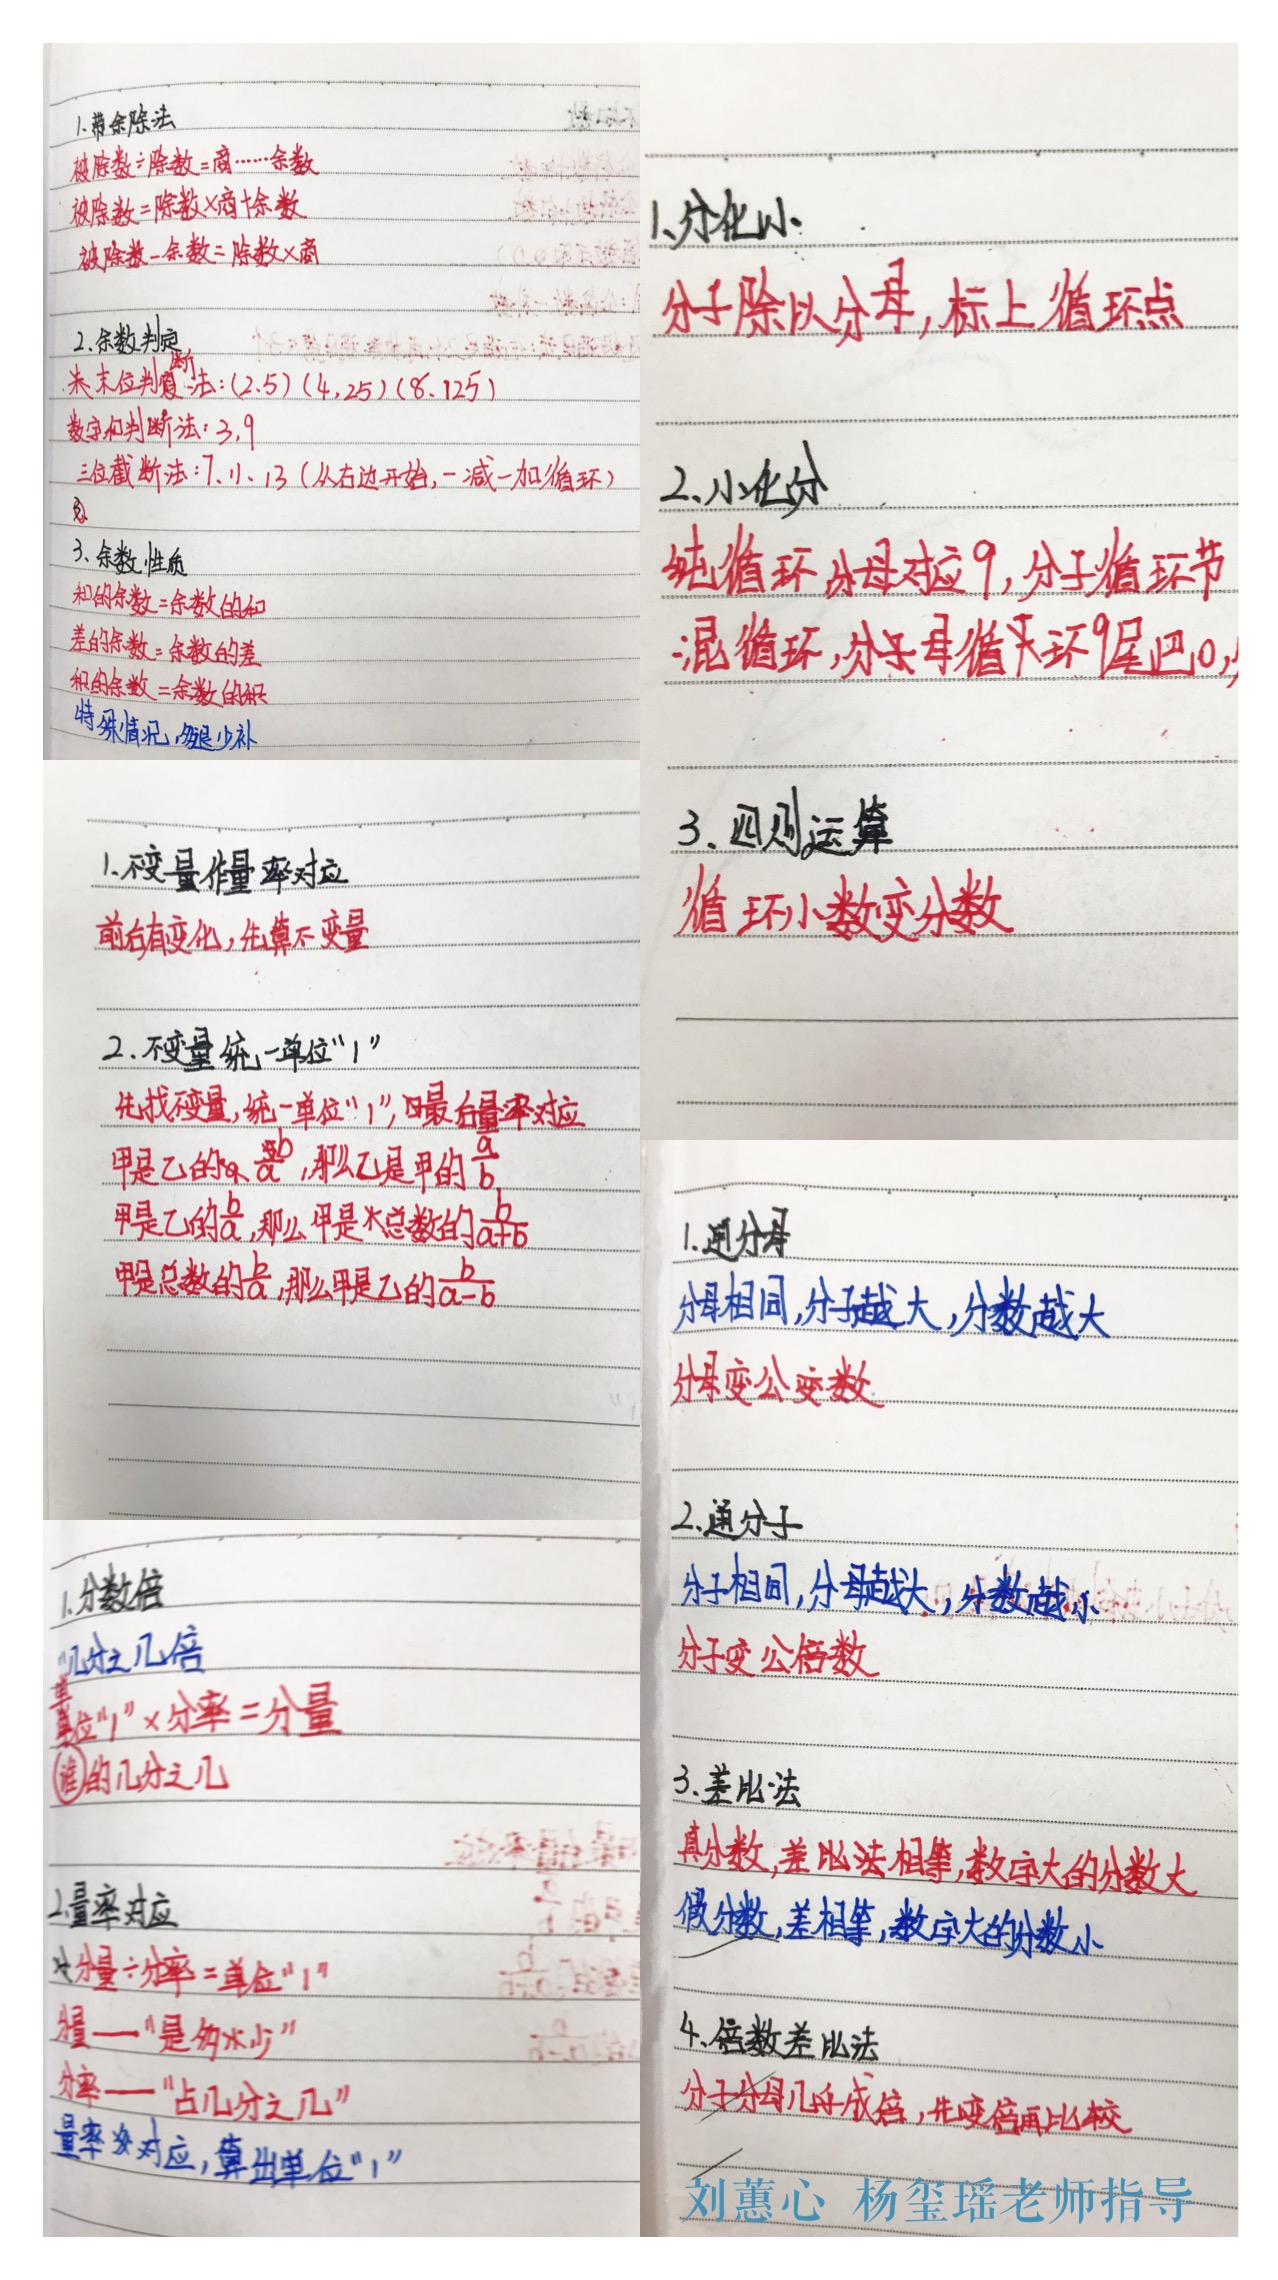 1.带余除法
被除数÷除数=商……余数
被除数=除数×商+余数
被除数-余数=除数×商
2.余数判定
末位判断法:(2.5)(4,25)(8.125)
数字和判断法:3,9
三位截断法:7、11、13(从右边开始,一减一加循环)
3、余数性质
和的余数=余数的和
差的余数=余数的差
积的余数=余数的积
特殊情况,多退少补
1.不变量作量率对应
前后有变化,先算不变量
2.不变量统一单位“1”
先找不变量,统一单位“1”,最后量率对应
甲是乙的b/a,那么乙是甲的a/b
甲是乙的b/a,那么甲是总数的b/a+b
甲是总数的b/a,那么甲是乙的b/a-b
1.分数倍
“几分之几倍
单位“1”×分率=分量
谁的几分之几
2.量率对应
分量÷分率=单位“1”
分量——“是多少”
分率——“占几分之几”
量率对应,算出单位“1”
1.分化小
分子除以分母,标上循环点
2.小化分
纯循环分母对应9,分子循环节
混循环,分母循环9尾巴0,
3.四则运算
循环小数变分数
1.通分母
分母相同,分子越大,分数越大
分母变公变数
2.通分子
分子相同,分母越大,分数越小
分子变公倍数
3.差比法
真分数,差比法相等,数字大的分数大
假分数,差相等,数字大的分数小
4.倍数差比法
分子分母几乎成倍,先变倍再比较
刘蕙心 杨玺瑶老师指导